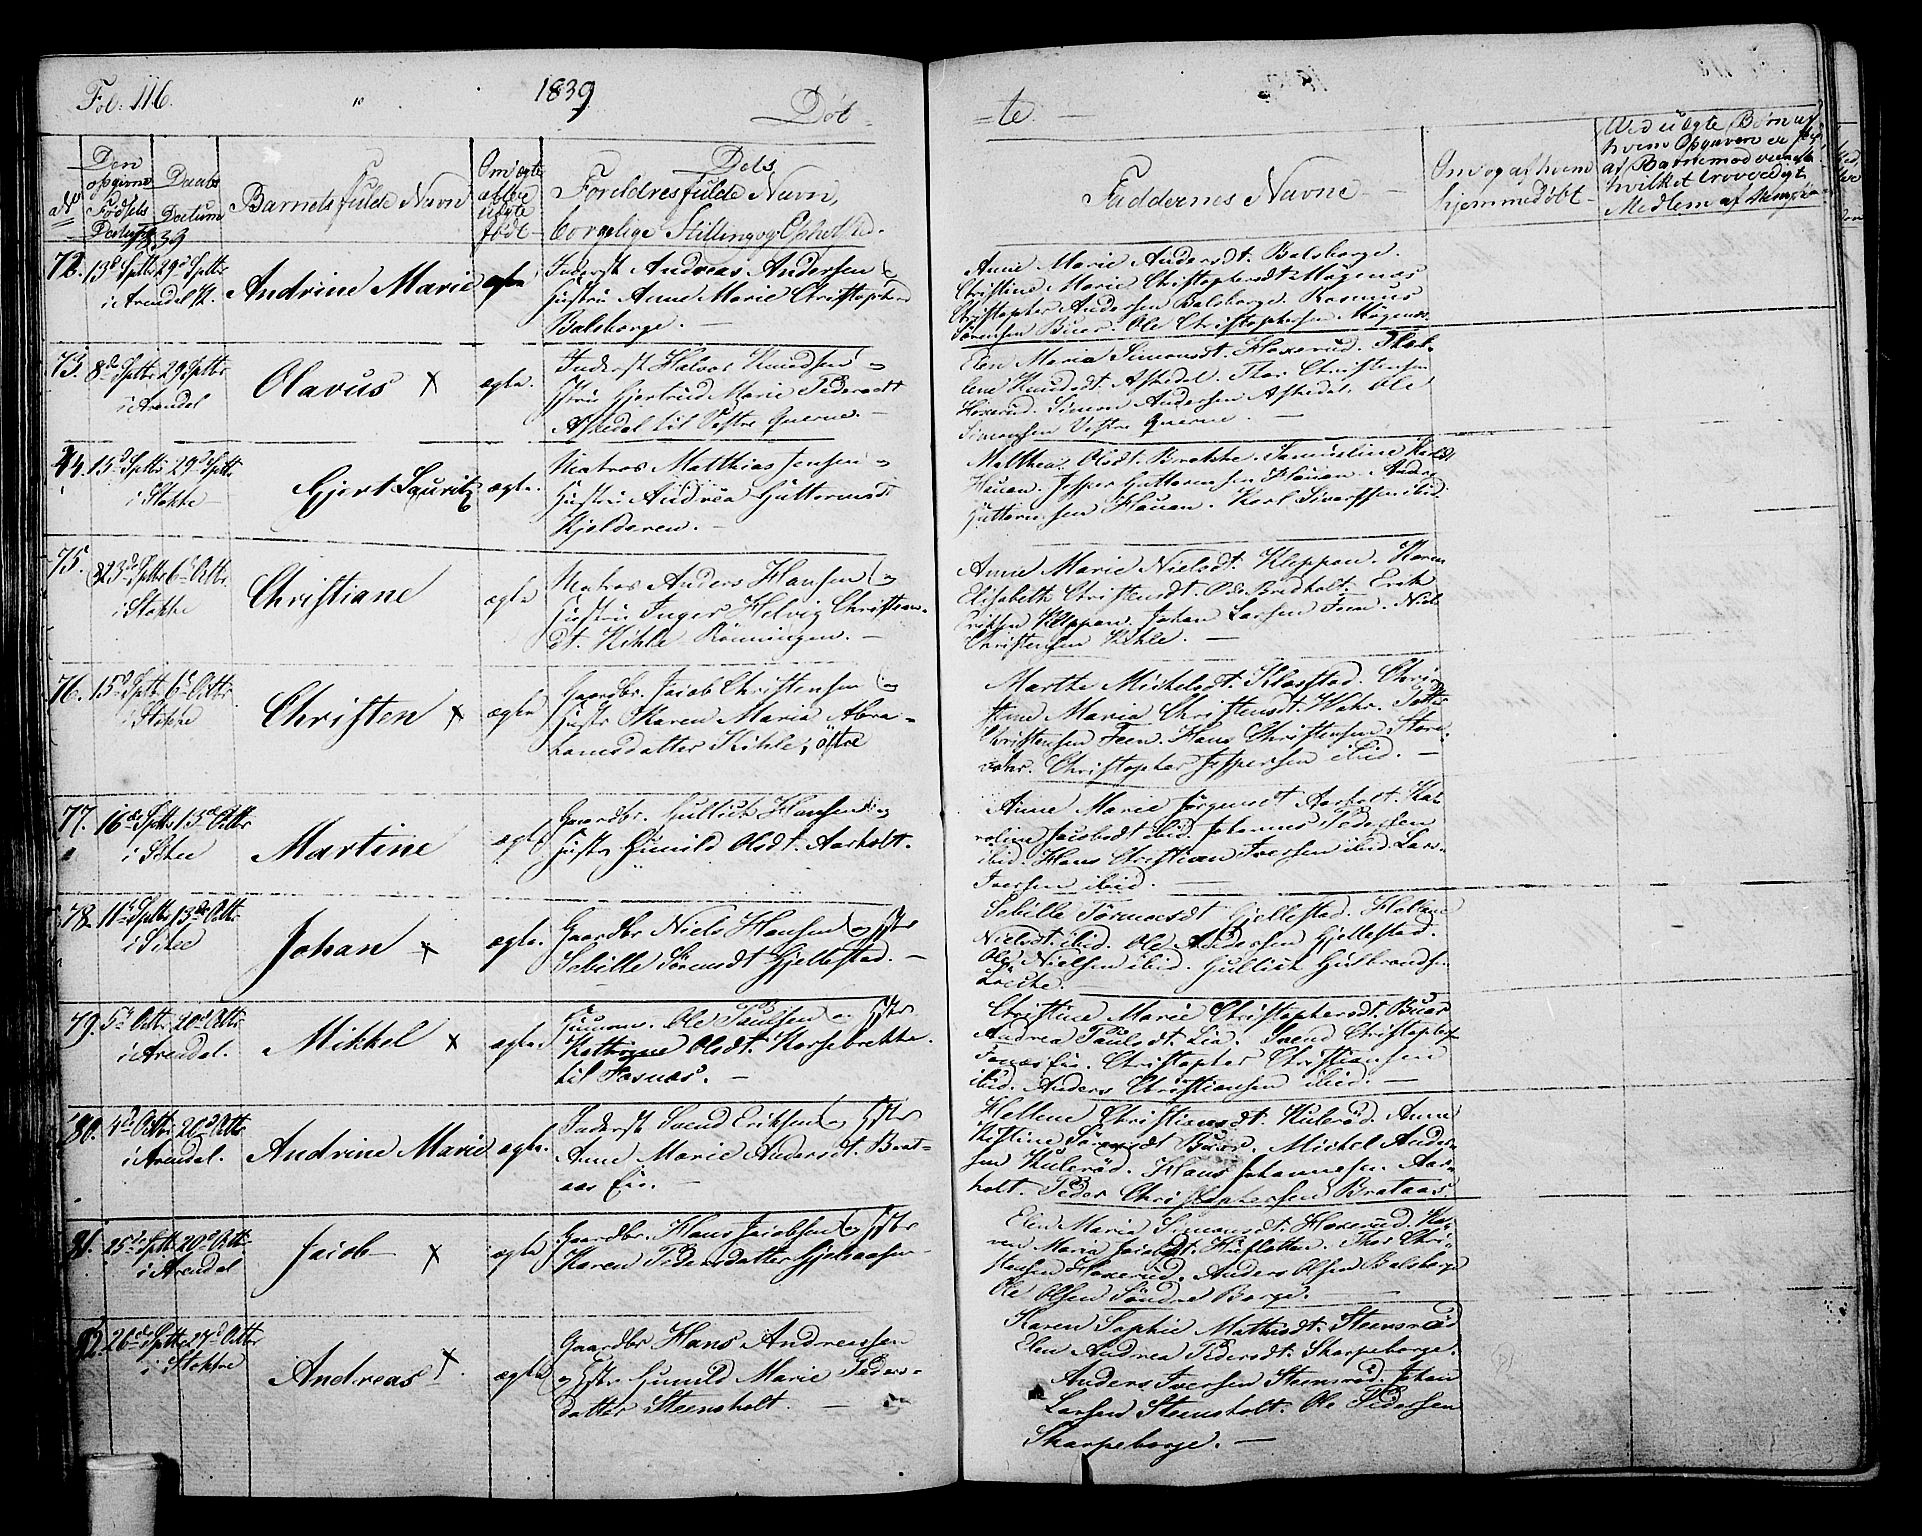 Fol. 116.
1839
Döb-
-te.
No
Den opgivne Födsels Datum
Daabs Datum
Barnets fulde Navn
Om ægte eller uægte födt
Dets Forældres fulde Navn, borgelige Stilling og Opholsted.
Faddernes Navne
Om og af hvem hjemmedöbt
Ved uægte Börn af hvem Opgaven er
af Barnemoderen
hvilket troværdigt
Medlem af
1839
72. 13de Sptbr 29de Sptbr i Arendal K.
Andrine Marie
ægte
Inderst Andreas Andersen og
Hustru Anne Marie Christophersd
Balsborge.
Anne Marie Andersdt. Balsborge.
Christine Marie Christophersdt. Mögenæs
Christopher Andersen Balsborge. Rasmus
Sörensen Buer. Ole Christophersen Mögenæs
73. 8de Sptbr 29 Sptbr i Arendal
Olavus x
ægte.
Inderst Halvor Knudsen og
Hstru Gjertrud Marie Pedersdt
Askedal til Vestre Qverne.
Elen Maria Simonsdt. Hoxerud. Thab-
lene Knudsdt. Askedal. Thor Christensen
Hoxerud. Simon Andersen Askedal. Ole
Simonsen Vestre Qverne.
74. 15de Sptbr 29de Sptbr i Stokke
Gjert Lauritz
ægte.
Matros Matthias Jensen og
Hustru Andrea Guttormsdt
Kjelderen.
Malthea Olsdt. Brekke. Samueline Karlsdt
Hauan. Jesper Guttormsen Hauan. Anders
Guttormsen Hauan. Karl Sivertsen ibid.
75. 23de Sptbr 6te Octbr i Stokke
Christiane
ægte
Matros Anders Hansen og
Hustru Inger Helvig Christen-
dt. Kihle Rönningen.
Anne Marie Nielsdt. Kleppan. Karen
Elisabeth Christensdt. Bredholt. Erik
Eriksen Kleppan. Johan Larsen Feen. Niels
Christensen Kihle.
76. 15de Sptbr 6te Octbr i Stokke
Christen x
ægte
Gaardbr. Jacob Christensen og
Hustr Karen Maria Abra-
hamsdatter Kihle, östre
Marthe Michelsdt. Klavestad. Chri-
stine Maria Christensdt. Wahr.
Christensen Feen. Hans Christensen Store-
wahr. Christopher Jespersen ibid.
77. 16de Sptbr 13de Octbr i Skee
Martine
ægte
Gaardbr. Gullich Hansen og
Hustr Gunild Olsdt. Aarholt.
Anne Marie Jörgensdt Aarholt. Ka-
roline Jacobsdt ibid. Johannes Pedersen
ibid. Hans Christian Iversen ibid. Lars
Iversen ibid.
78. 11te Sptbr 13de Octbr i Skee
Johan x
ægte.
Gaardbr Niels Hansen og Hstr
Sebille Sörensdt Gjellestad.
Sebille Tormodsdt Gjellestad. Hellene
Nielsdt. ibid. Ole Andersen Gjellestad.
Ole Nielsen ibid. Gullich Gulbrands.
79. 5te Octbr 20de Octbr i Arendal.
Mikkel x
ægte.
Ole Paulsen og Hstr
Kathrine Olsdt. Korsebrekke.
til Fosnæs.
Christine Marie Christophersdt. Buer
Andrea Paulsdt. Lia. Svend Christophers.
Christopher Christiansen
ibid. Anders Christiansen ibid.
80. 4de Octbr 20de Octbr i Arendal.
Andrine Marie
ægte.
Inderst Svend Eriksen og Hstr
Anne Marie Andersdt. Brat-
aas Eie.
Hellene Christiansdt. Kuleröd. Anne
Kistine Sörensdt Buer. Michel Ander-
sen Kuleröd. Hans Johannesen. Aar-
holt. Peder Christophersen Brataas.
81. 25de Sptbr 20de Octbr i Arendal
Jacob x
ægte
Gaardbr. Hans Jacobsen og Hstr
Karen Pedersdatter Gjelsaasen
Elen Maria Simonsdt. Hoxeröd. Ka-
ren Maria Jacobsdt. Huflotten. Thor Chri-
stensen Hoxeröd. Anders Olsen Balsborge
Ole Olsen Söndre Borge.
82. 26de Sptbr 27de Octbr i Stokke
Andreas x
ægte
Gaardbr Hans Andreassen
og Hstr Gunild Marie Peders-
datter Steensholt.
Karen Sophie Mathisdt. Steensröd
Elen Andrea Pedersdt. Skorpeborge.
Anders Iversen Steensröd. Johan
Larsen Steensholt. Ole Pedersen
Skorpeborge.